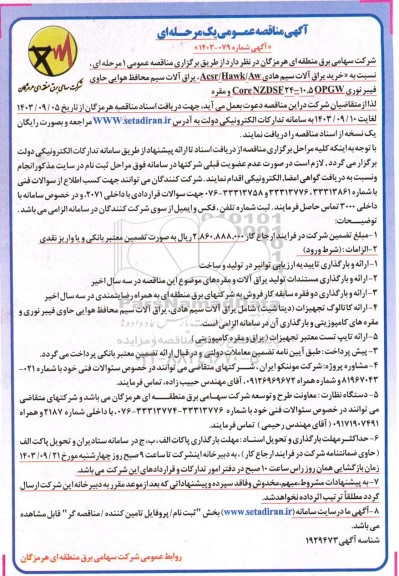 آگهی مناقصه عمومی یک مرحله ای
«آگهی شماره ۰۷۹-۱۴۰۳»
شرکت سهامی برق منطقه ای هرمزگان
شرکت سهامی برق منطقه ای هرمزگان در نظر دارد از طریق برگزاری مناقصه عمومی ۱ مرحله ای،
نسبت به «خرید یراق آلات سیم هادی Acsr/Hawk/Aw، یراق آلات سیم محافظ هوایی حاوی
فیبر نوری Core NZDSF ۲۴-۱۰.۵ OPGW و مقره
لذا از متقاضیان شرکت در این مناقصه دعوت بعمل می آید، جهت دریافت اسناد مناقصه هرمزگان از تاریخ ۱۴۰۳/۰۹/۰۵
لغایت ۱۴۰۳/۰۹/۱۰ به سامانه تدارکات الکترونیکی دولت به آدرس WWW.setadiran.ir مراجعه و بصورت رایگان
یک نسخه از اسناد مناقصه را دریافت نمایند.
با توجه به اینکه کلیه مراحل برگزاری مناقصه از دریافت اسناد تا ارائه پیشنهاد از طریق سامانه تدارکات الکترونیکی دولت
برگزار می گردد. لازم است در صورت عدم عضویت قبلی شرکتها در سامانه فوق مراحل ثبت نام در سایت مذکور انجام
ونسبت به دریافت گواهی امضا الکترونیکی اقدام نمایند. شرکت کنندگان می توانند جهت کسب اطلاع از سوالات فنی
با شماره ۳۳۳۱۳۸۶۱ ۳۳۳۱۳۷۷۶ ۳۳۳۱۳۷۵۸-۰۷۶ جهت سوالات قراردادی با داخلی ۲۰۷۱، و در خصوص سامانه با
داخلی ۳۰۰۰ تماس حاصل فرمایند. ثبت شماره تلفن، فکس و ایمیل از سوی شرکت کنندگان در سامانه الزامی می باشد.
توضیحات:
۱-مبلغ تضمین شرکت در فرایند ارجاع کار ۲،۸۶۰،۸۸۸،۰۰۰ ریال به صورت تضمین معتبر بانکی و یا واریز نقدی
۲-الزامات: (شرط ورود)
۱-ارائه و بارگذاری تاییدیه ارزیابی توانیر در تولید و ساخت
۲-ارائه و بارگذاری مستندات تولید یراق آلات و مقره های موضوع این مناقصه در سه سال اخیر
۳-ارائه و بارگذاری دو فقره سابقه کار فروش به شرکتهای برق منطقه ای به همراه رضایتمندی در سه سال اخیر
۴-ارائه کاتالوگ تجهیزات (دیتاشیت) شامل یراق آلات سیم هادی، یراق آلات سیم محافظ هوایی حاوی فیبر نوری و
مقره های کامپوزیتی و بارگذاری آن در سامانه الزامی است.
۵-ارائه تایپ تست معتبر تجهیزات (یراق و مقره کامپوزیتی)
۳- پیش پرداخت: طبق آیین نامه تضمین معاملات دولتی و در قبال ارائه تضمین معتبر بانکی پرداخت می گردد.
۴- مشاوره پروژه: شرکت موننکو ایران، شرکتهای متقاضی می توانند در خصوص سئوالات فنی خود با شماره ۰۲۱-
۸۱۹۶۷۰۴۳ و شماره همراه ۰۹۱۲۶۹۶۹۶۷۲ آقای مهندس حبیب زاده، تماس فرمایند.
۵-دستگاه نظارت: معاونت طرح و توسعه شرکت سهامی برق منطقه ای هرمزگان می باشد و شرکتهای متقاضی
می توانند در خصوص سئوالات فنی خود با شماره ۳۳۳۱۳۷۷۶-۳۳۳۱۳۷۷۴-۰۷۶ با داخلی شماره ۲۱۸۷ و همراه
۰۹۱۷۱۹۰۷۴۹۱ (آقای مهندس رحیمی) تماس فرمایند.
۶-حداکثر مهلت بارگذاری و تحویل اسناد: مهلت بارگذاری پاکات الف، ب، ج در سامانه ستاد ایران و تحویل پاکت الف
(حاوی ضمانتنامه شرکت در فرایند ارجاع کار)، به دبیرخانه اینشرکت تا ساعت ۹ صبح روز چهارشنبه مورخ ۱۴۰۳/۰۹/۲۱
زمان بازگشایی همان روز راس ساعت ۱۰ صبح در دفتر امور تدارکات و قراردادهای این شرکت می باشد.
۷-به پیشنهادات مشروط، مبهم، مخدوش و فاقد سپرده و پیشنهاداتی که بعد از موعد مقرر به دبیرخانه این شرکت ارسال
گردد مطلقاً ترتیب اثر داده نخواهد شد.
۸-آگهی ما در سایت سامانه (www.setadiran.ir) بخش "ثبت نام/ پروفایل تامین کننده / مناقصه گر" قابل مشاهده
می باشد.
شناسه آگهی ۱۹۲۹۴۷۳
روابط عمومی شرکت سهامی برق منطقه ای هرمزگان